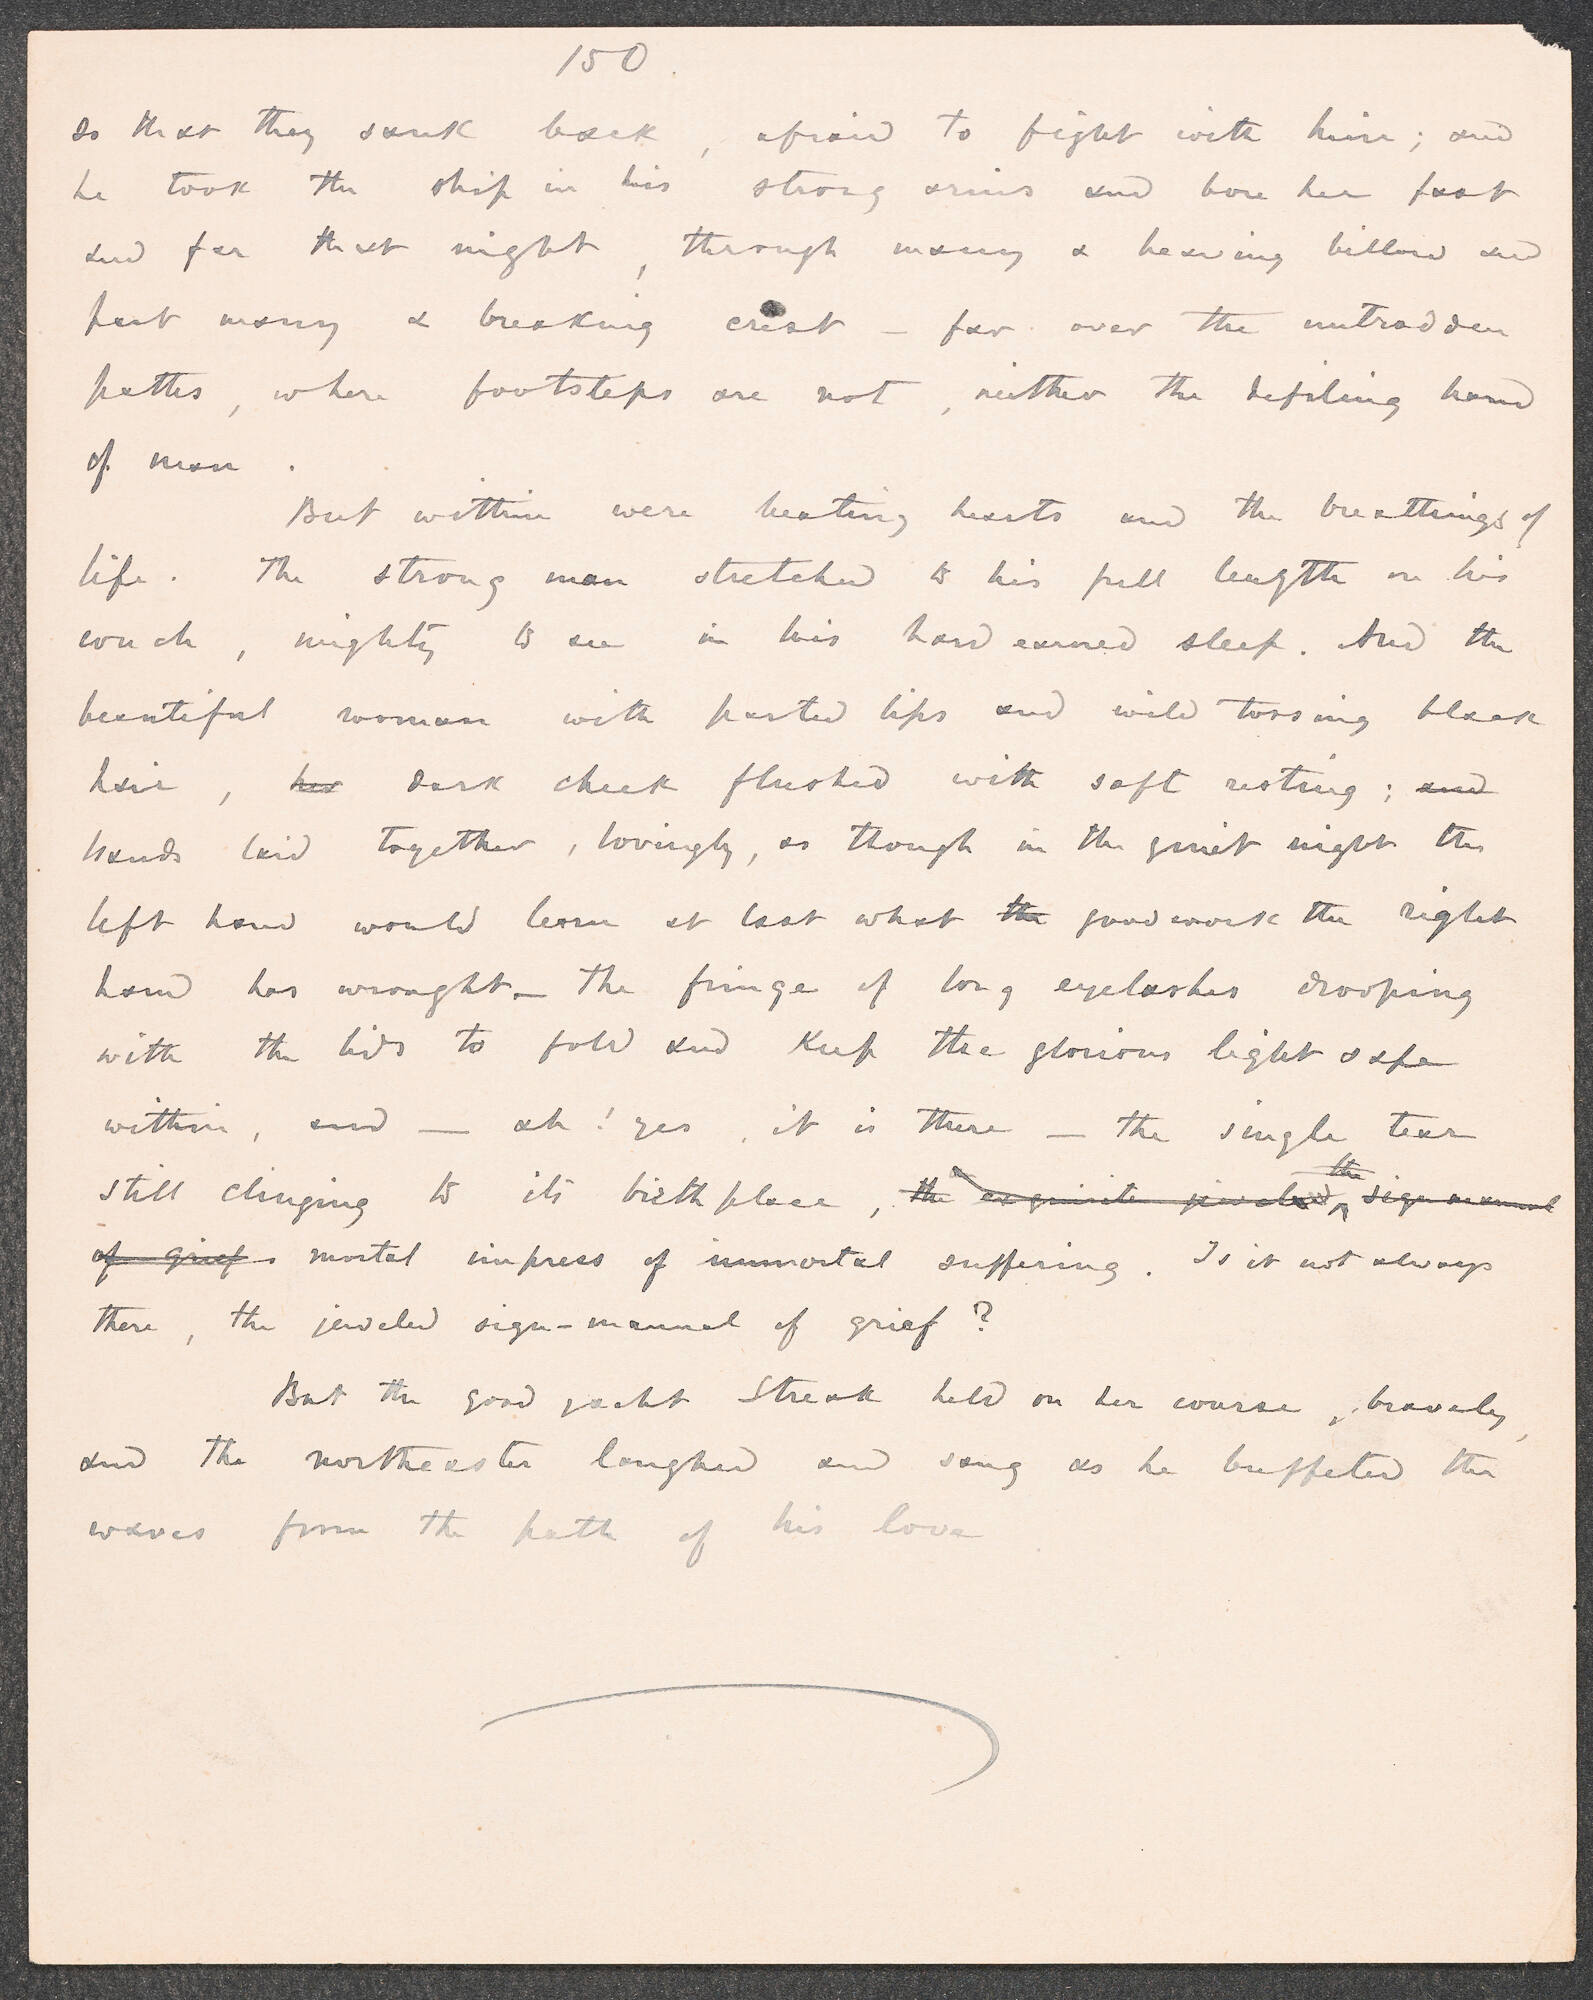 150
so that they sank back, afraid to fight with him; and
he took the ship in his strong arms and bore her fast
and far that night, through many a heaving billow and
past many a breaking crest – far over the untrodden
paths, where footsteps are not, neither the defiling hand
of man.
But within were beating hearts and the breathings of
life. The strong man stretched to his full length on his
couch, mighty to see in his hard earned sleep. And the
beautiful woman with parted lips and wild tossing black
hair, her dark cheek flushed with soft resting; and
hands laid together, lovingly, as though in the quiet night the
left hand would learn at last what the good work the right
hand has wrought – the fringe of long eyelashes drooping
with the lids to fold and keep the glorious light safe
within, and — ah! yes, it is there — the single tear
the
still clinging to its birthplace, the exquisite jeweled sign manual
of grief mortal impress of immortal suffering. Is it not always
there, the jeweled sign-manual of grief?
But the good yacht Streak held on her course, bravely,
and the northeaster laughed and sang as he buffeted the
waves from the path of his love